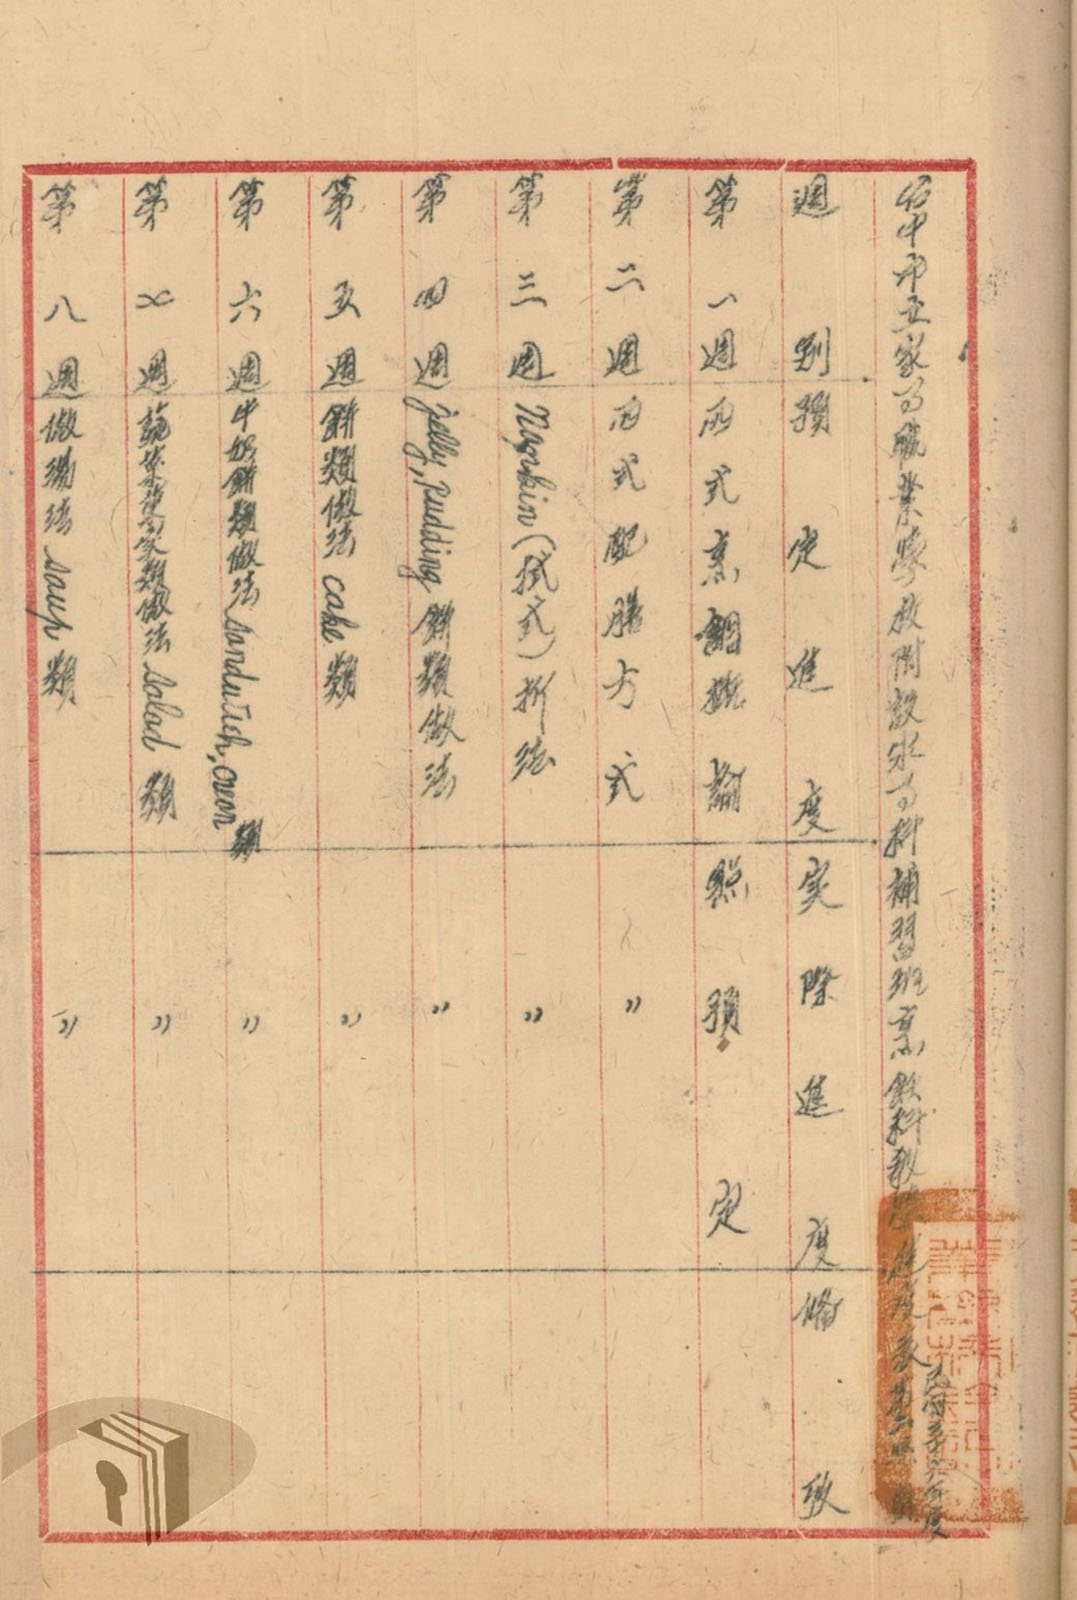 台中市立家事職業學校附設家事科補習班烹飪科教學進度表第二學期
民國三十六年度
週別 預定進度 実際進度 備攷
第一週 西式烹調概論 照預定
第二週 西式配膳方式 〃
第三週 Napkin(拭式)折法 〃
第四週 Jelly, Pudding 餅類做法 〃
第五週 餅類做法 cake 類 〃
第六週 牛奶餅類做法 sanduich, cream 類 〃
第七週 蔬菜類做法 salad 類 〃
第八週 做湯法 saup 類 〃